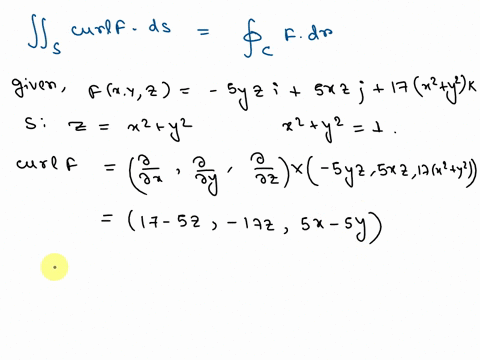 ∬_S curl F · ds = ∮_C F. dr
given, F(x.y, z) = - 5yz i + 5xz j + 17(x²+y²)k
S: z = x²+y² x²+y² = 1.
curl F = (∂/∂x, ∂/∂y, ∂/∂z) × (-5yz, 5xz, 17(x²+y²))
= (17-5z, -17z, 5x-5y)